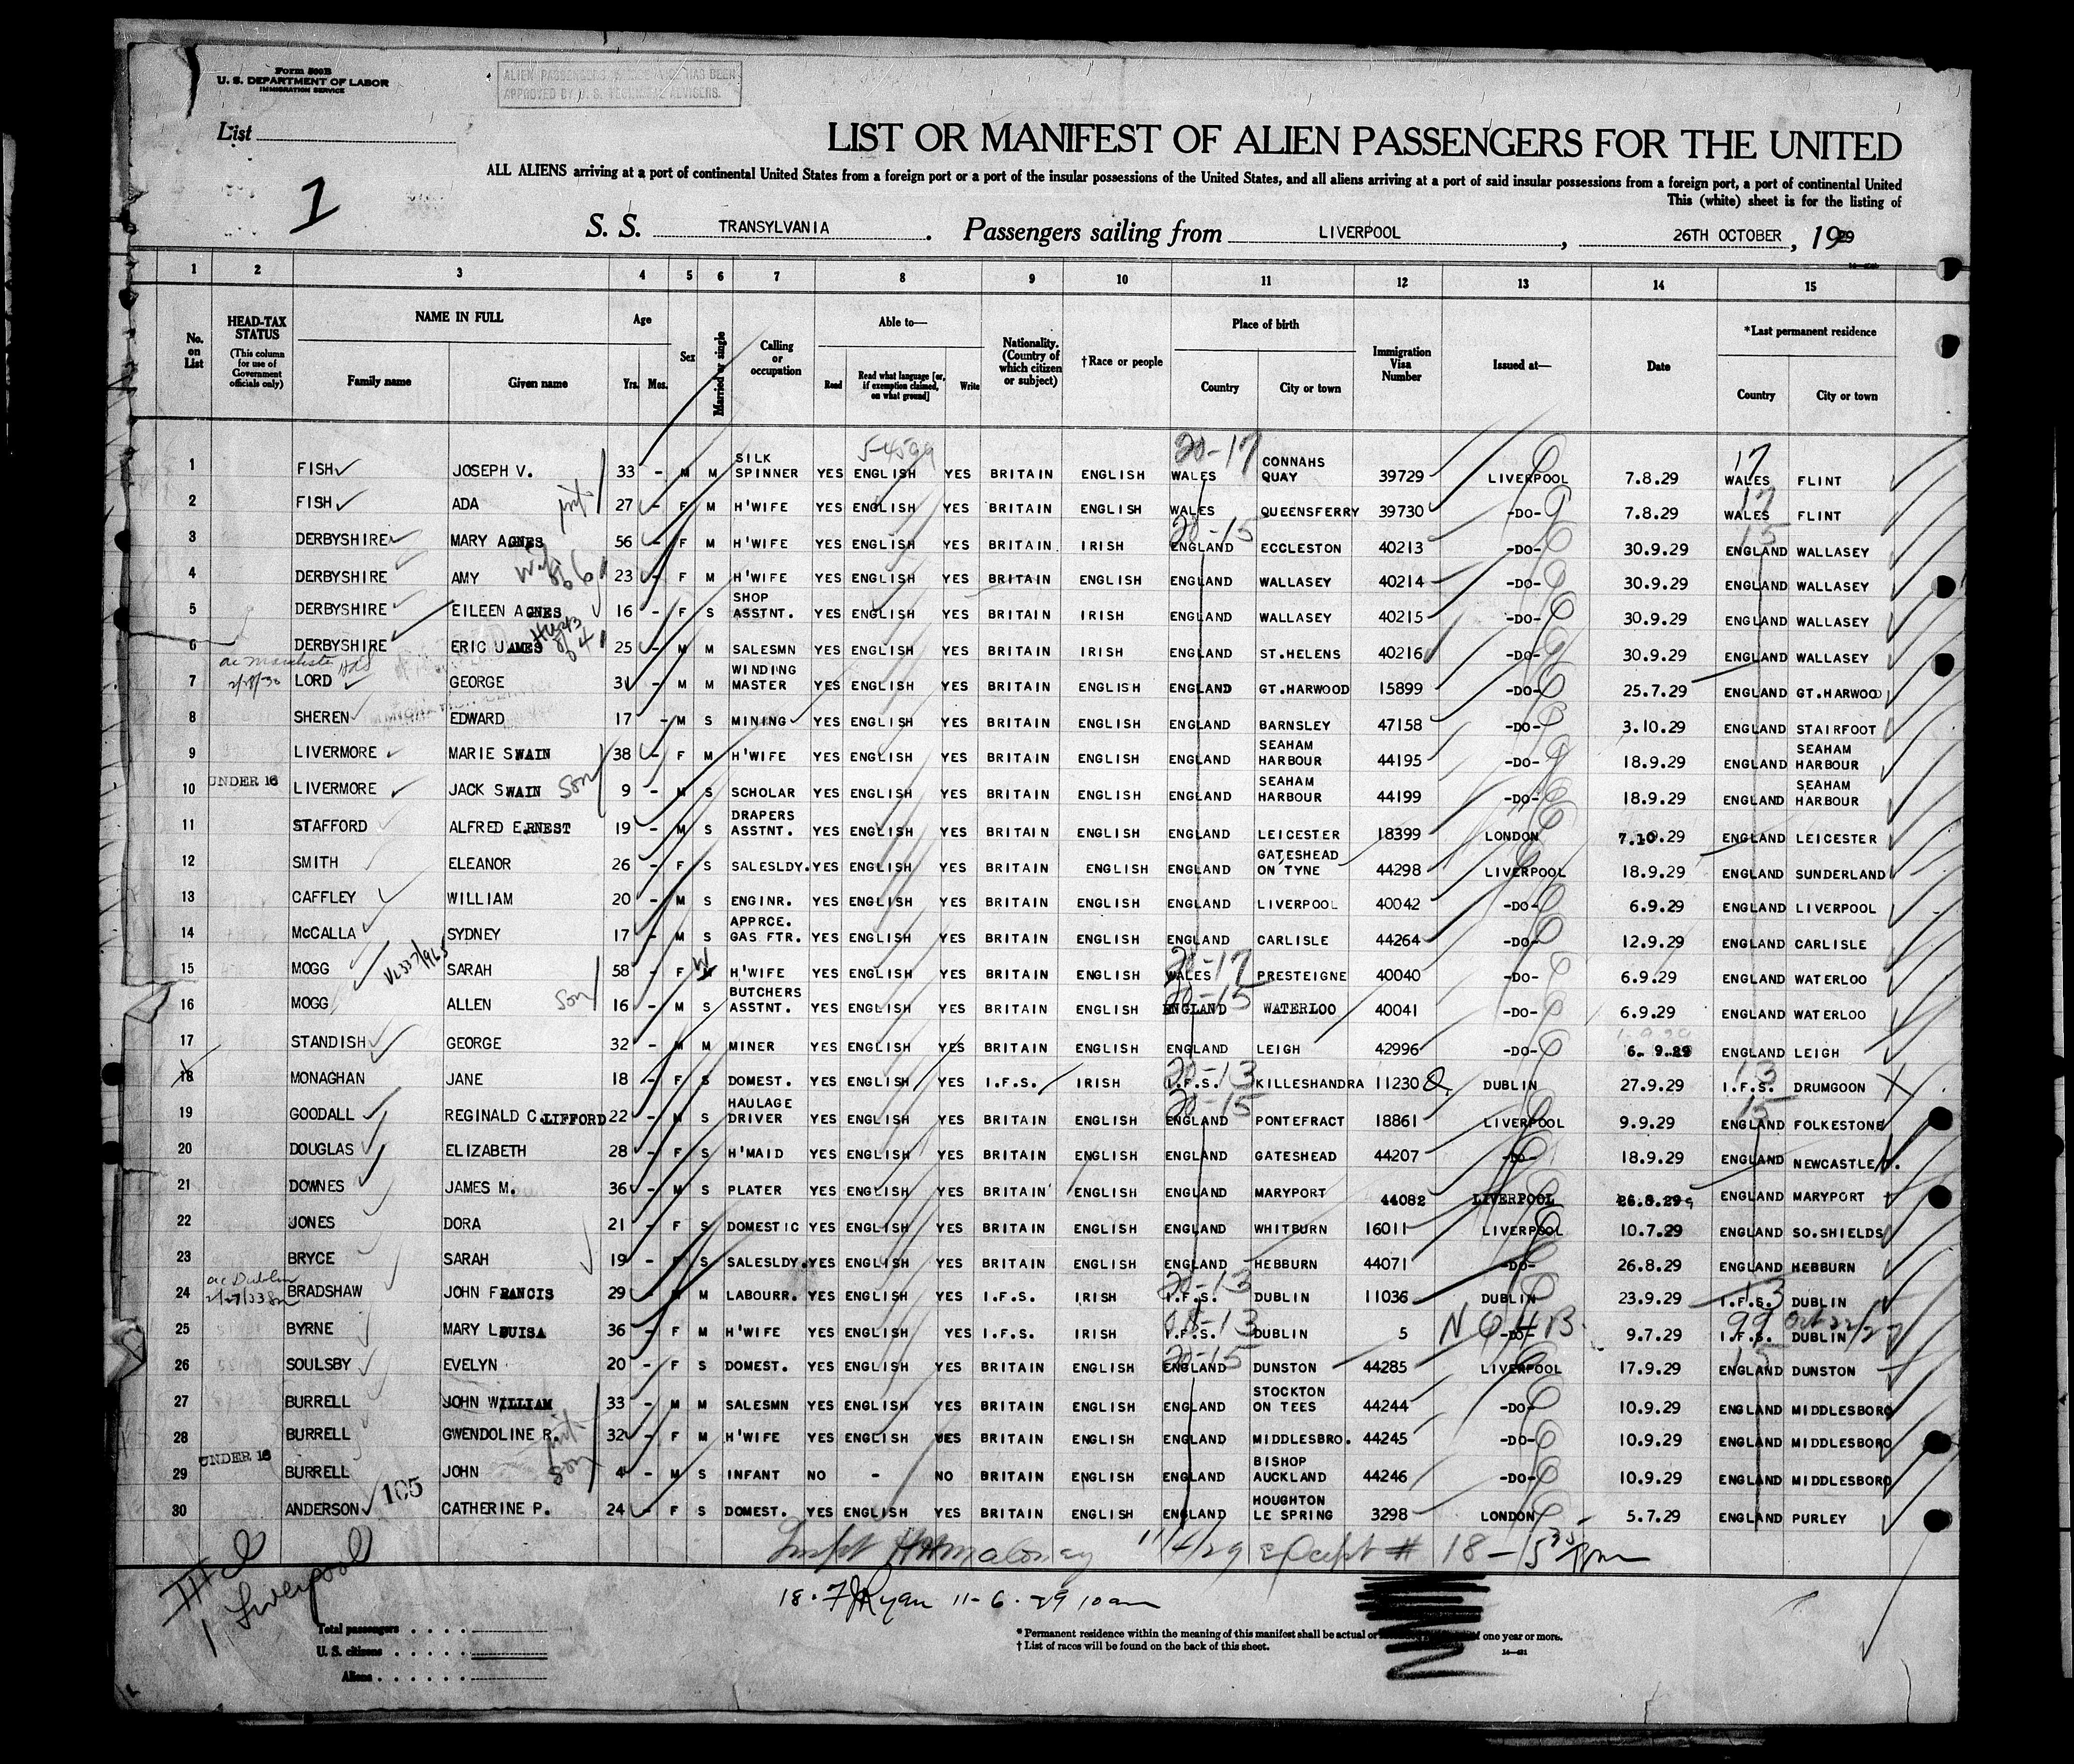 Form 500B
U. S. DEPARTMENT OF LABOR
IMMIGRATION SERVICE
ALIEN PASSENGERS HAS BEEN
APPROVED BY U. S. TECHNICAL ADVISERS.
List
1
LIST OR MANIFEST OF ALIEN PASSENGERS FOR THE UNITED
ALL ALIENS arriving at a port of continental United States from a foreign port or a port of the insular possessions of the United States, and all aliens arriving at a port of said insular possessions from a foreign port, a port of continental United
This (white) sheet is for the listing of
S. S. TRANSYLVANIA . Passengers sailing from LIVERPOOL , 26TH OCTOBER , 1929
1 2 3 4 5 6 7 8 9 10 11 12 13 14 15
No. on List HEAD-TAX STATUS (This column for use of Government officials only) NAME IN FULL Family name Given name Age Yrs. Mos. Sex Married or single Calling or occupation Able to— Read Read what language [or, if exemption claimed, on what ground] Write Nationality. (Country of which citizen or subject) †Race or people Place of birth Country City or town Immigration Visa Number Issued at— Date *Last permanent residence Country City or town
5-4599 20-17 17
1 FISH JOSEPH V. 33 - M M SILK SPINNER YES ENGLISH YES BRITAIN ENGLISH WALES CONNAHS QUAY 39729 LIVERPOOL 7.8.29 WALES FLINT
2 FISH ADA 27 - F M H'WIFE YES ENGLISH YES BRITAIN ENGLISH WALES QUEENSFERRY 39730 -DO- 7.8.29 WALES FLINT
20-15 15
3 DERBYSHIRE MARY AGNES 56 - F M H'WIFE YES ENGLISH YES BRITAIN IRISH ENGLAND ECCLESTON 40213 -DO- 30.9.29 ENGLAND WALLASEY
4 DERBYSHIRE AMY 23 - F M H'WIFE YES ENGLISH YES BRITAIN ENGLISH ENGLAND WALLASEY 40214 -DO- 30.9.29 ENGLAND WALLASEY
5 DERBYSHIRE EILEEN AGNES 16 - F S SHOP ASSTNT. YES ENGLISH YES BRITAIN IRISH ENGLAND WALLASEY 40215 -DO- 30.9.29 ENGLAND WALLASEY
6 DERBYSHIRE ERIC JAMES 25 - M M SALESMN YES ENGLISH YES BRITAIN IRISH ENGLAND ST.HELENS 40216 -DO- 30.9.29 ENGLAND WALLASEY
7 LORD GEORGE 31 - M M WINDING MASTER YES ENGLISH YES BRITAIN ENGLISH ENGLAND GT.HARWOOD 15899 -DO- 25.7.29 ENGLAND GT.HARWOOD
8 SHEREN EDWARD 17 - M S MINING YES ENGLISH YES BRITAIN ENGLISH ENGLAND BARNSLEY 47158 -DO- 3.10.29 ENGLAND STAIRFOOT
9 LIVERMORE MARIE SWAIN 38 - F M H'WIFE YES ENGLISH YES BRITAIN ENGLISH ENGLAND SEAHAM HARBOUR 44195 -DO- 18.9.29 ENGLAND SEAHAM HARBOUR
10 UNDER 16 LIVERMORE JACK SWAIN Son 9 - M S SCHOLAR YES ENGLISH YES BRITAIN ENGLISH ENGLAND SEAHAM HARBOUR 44199 -DO- 18.9.29 ENGLAND SEAHAM HARBOUR
11 STAFFORD ALFRED ERNEST 19 - M S DRAPERS ASSTNT. YES ENGLISH YES BRITAIN ENGLISH ENGLAND LEICESTER 18399 LONDON 7.10.29 ENGLAND LEICESTER
12 SMITH ELEANOR 26 - F S SALESLDY. YES ENGLISH YES BRITAIN ENGLISH ENGLAND GATESHEAD ON TYNE 44298 LIVERPOOL 18.9.29 ENGLAND SUNDERLAND
13 CAFFLEY WILLIAM 20 - M S ENGINR. YES ENGLISH YES BRITAIN ENGLISH ENGLAND LIVERPOOL 40042 -DO- 6.9.29 ENGLAND LIVERPOOL
14 McCALLA SYDNEY 17 - M S APPRCE. GAS FTR. YES ENGLISH YES BRITAIN ENGLISH ENGLAND CARLISLE 44264 -DO- 12.9.29 ENGLAND CARLISLE
20-17
15 MOGG SARAH 58 - F W H'WIFE YES ENGLISH YES BRITAIN ENGLISH WALES PRESTEIGNE 40040 -DO- 6.9.29 ENGLAND WATERLOO
20-15
16 MOGG ALLEN Son 16 - M S BUTCHERS ASSTNT. YES ENGLISH YES BRITAIN ENGLISH ENGLAND WATERLOO 40041 -DO- 6.9.29 ENGLAND WATERLOO
17 STANDISH GEORGE 32 - M M MINER YES ENGLISH YES BRITAIN ENGLISH ENGLAND LEIGH 42996 -DO- 6. 9.29 ENGLAND LEIGH
20-13 13
18 MONAGHAN JANE 18 - F S DOMEST. YES ENGLISH YES I.F.S. IRISH I.F.S. KILLESHANDRA 11230 DUBLIN 27.9.29 I.F.S. DRUMGOON
20-15 15
19 GOODALL REGINALD CLIFFORD 22 - M S HAULAGE DRIVER YES ENGLISH YES BRITAIN ENGLISH ENGLAND PONTEFRACT 18861 LIVERPOOL 9.9.29 ENGLAND FOLKESTONE
20 DOUGLAS ELIZABETH 28 - F S H'MAID YES ENGLISH YES BRITAIN ENGLISH ENGLAND GATESHEAD 44207 -DO- 18.9.29 ENGLAND NEWCASTLE
21 DOWNES JAMES M. 36 - M S PLATER YES ENGLISH YES BRITAIN ENGLISH ENGLAND MARYPORT 44082 LIVERPOOL 26.8.29 ENGLAND MARYPORT
22 JONES DORA 21 - F S DOMESTIC YES ENGLISH YES BRITAIN ENGLISH ENGLAND WHITBURN 16011 LIVERPOOL 10.7.29 ENGLAND SO.SHIELDS
23 BRYCE SARAH 19 - F S SALESLDY. YES ENGLISH YES BRITAIN ENGLISH ENGLAND HEBBURN 44071 -DO- 26.8.29 ENGLAND HEBBURN
20-13 13
24 BRADSHAW JOHN FRANCIS 29 - M M LABOURR. YES ENGLISH YES I.F.S. IRISH I.F.S. DUBLIN 11036 DUBLIN 23.9.29 I.F.S. DUBLIN
25 BYRNE MARY LOUISA 36 - F M H'WIFE YES ENGLISH YES I.F.S. IRISH I.F.S. DUBLIN 5 -DO- 9.7.29 I.F.S. DUBLIN
20-15 15
26 SOULSBY EVELYN 20 - F S DOMEST. YES ENGLISH YES BRITAIN ENGLISH ENGLAND DUNSTON 44285 LIVERPOOL 17.9.29 ENGLAND DUNSTON
27 BURRELL JOHN WILLIAM 33 - M M SALESMN YES ENGLISH YES BRITAIN ENGLISH ENGLAND STOCKTON ON TEES 44244 -DO- 10.9.29 ENGLAND MIDDLESBORO
28 BURRELL GWENDOLINE R. 32 - F M H'WIFE YES ENGLISH YES BRITAIN ENGLISH ENGLAND MIDDLESBRO. 44245 -DO- 10.9.29 ENGLAND MIDDLESBORO
29 UNDER 16 BURRELL JOHN Son 4 - M S INFANT NO - NO BRITAIN ENGLISH ENGLAND BISHOP AUCKLAND 44246 -DO- 10.9.29 ENGLAND MIDDLESBORO
30 ANDERSON 105 CATHERINE P. 24 - F S DOMEST. YES ENGLISH YES BRITAIN ENGLISH ENGLAND HOUGHTON LE SPRING 3298 LONDON 5.7.29 ENGLAND PURLEY
Maloney 11/4/29 Except # 18 - 5 35 pm
18. Ryan 11-6-29 10 am
1 Liverpool
Total passengers
U. S. citizens
Aliens
* Permanent residence within the meaning of this manifest shall be actual or of one year or more.
† List of races will be found on the back of this sheet.